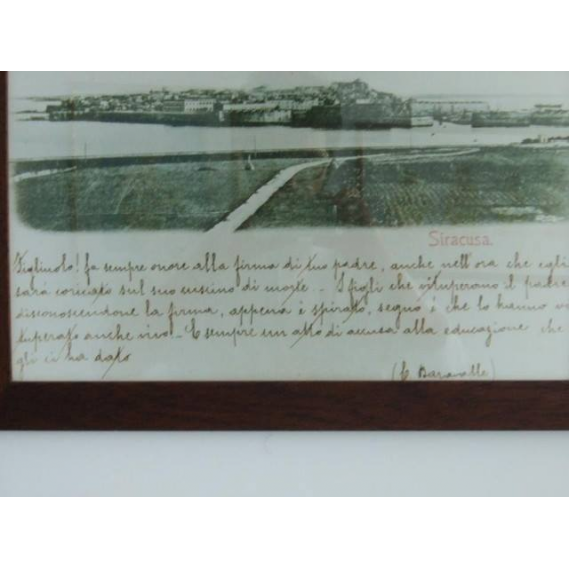 Siracusa.
Figliuolo! fa sempre onore alla firma di tuo padre, anche nell'ora che egli
sarà coricato sul suo cuscino di morte - I figli che vituperano il padre
disconoscendone la firma, appena è spirato, segno è che lo hanno vi
tuperato anche vivo! - È sempre un atto di accusa alla educazione che
gli ci ha dato